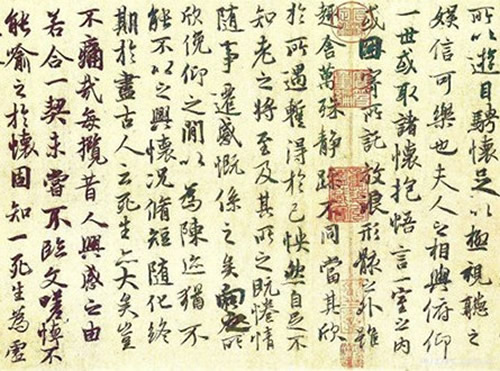 所以遊目騁懷足以極視聽之
娛信可樂也夫人之相與俯仰
一世或取諸懷抱悟言一室之內
或因寄所託放浪形骸之外雖
趣舍萬殊靜躁不同當其欣
於所遇蹔得於己怏然自足不
知老之將至及其所之既惓情
隨事遷感慨係之矣向之所
欣俛仰之間以為陳迹猶不
能不以之興懷況脩短隨化終
期於盡古人云死生亦大矣豈
不痛哉每攬昔人興感之由
若合一契未嘗不臨文嗟悼不
能喻之於懷固知一死生為虛